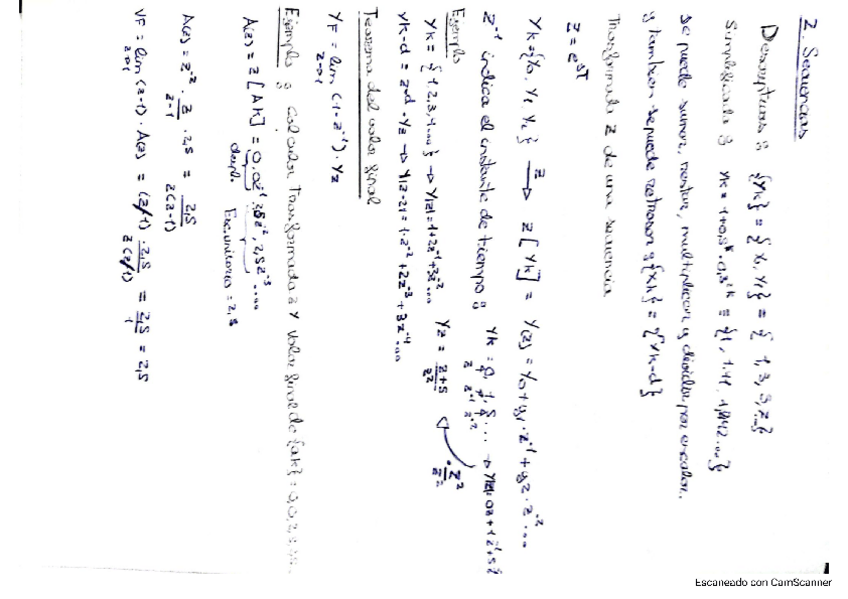 2. Secuencias
Descriptivas: {Yk} = {Y0, Y1} = { 1, 3, 5, 7...}
Simplificada: Yk = 1+0,5^k · 0,3^2k = {1, 1,41, 1,042...}
Se puede sumar, restar, multiplicar y dividir por escalar.
y tambien se puede retrasar: {Xk} = {Yk-d}
Transformada Z de una secuencia
Z = e^ST
Yk={Y0, Y1, Y2} → Z[Yk] = Y(z) = Y0+Y1·z^-1+Y2·z^-2...
z^-1 indica el instante de tiempo:
Ejemplo
Yk = {1,2,3,4...} → Y(z)=1+2z^-1+3z^-2... Yz = z+5/z^2 · z^2/z^2
Yk-d = z^-d · Yz → Y(z-2)=1·z^-2+2z^-3+3z^-4...
Teorema del valor final
YF = lim (1-z^-1) · Yz
z→1
Ejemplo: Calcular Transformada Z y Valor final de {ak} =
A(z) = Z[AK] =
despl. Esc.unitarios = 2,5
A(z) = z^-2 · z/z-1 · 2,5 = 2,5/z(z-1)
VF = lim (z-1) · A(z) = (z-1) · 2,5/z(z-1) = 2,5/1 = 2,5
z→1
Escaneado con CamScanner